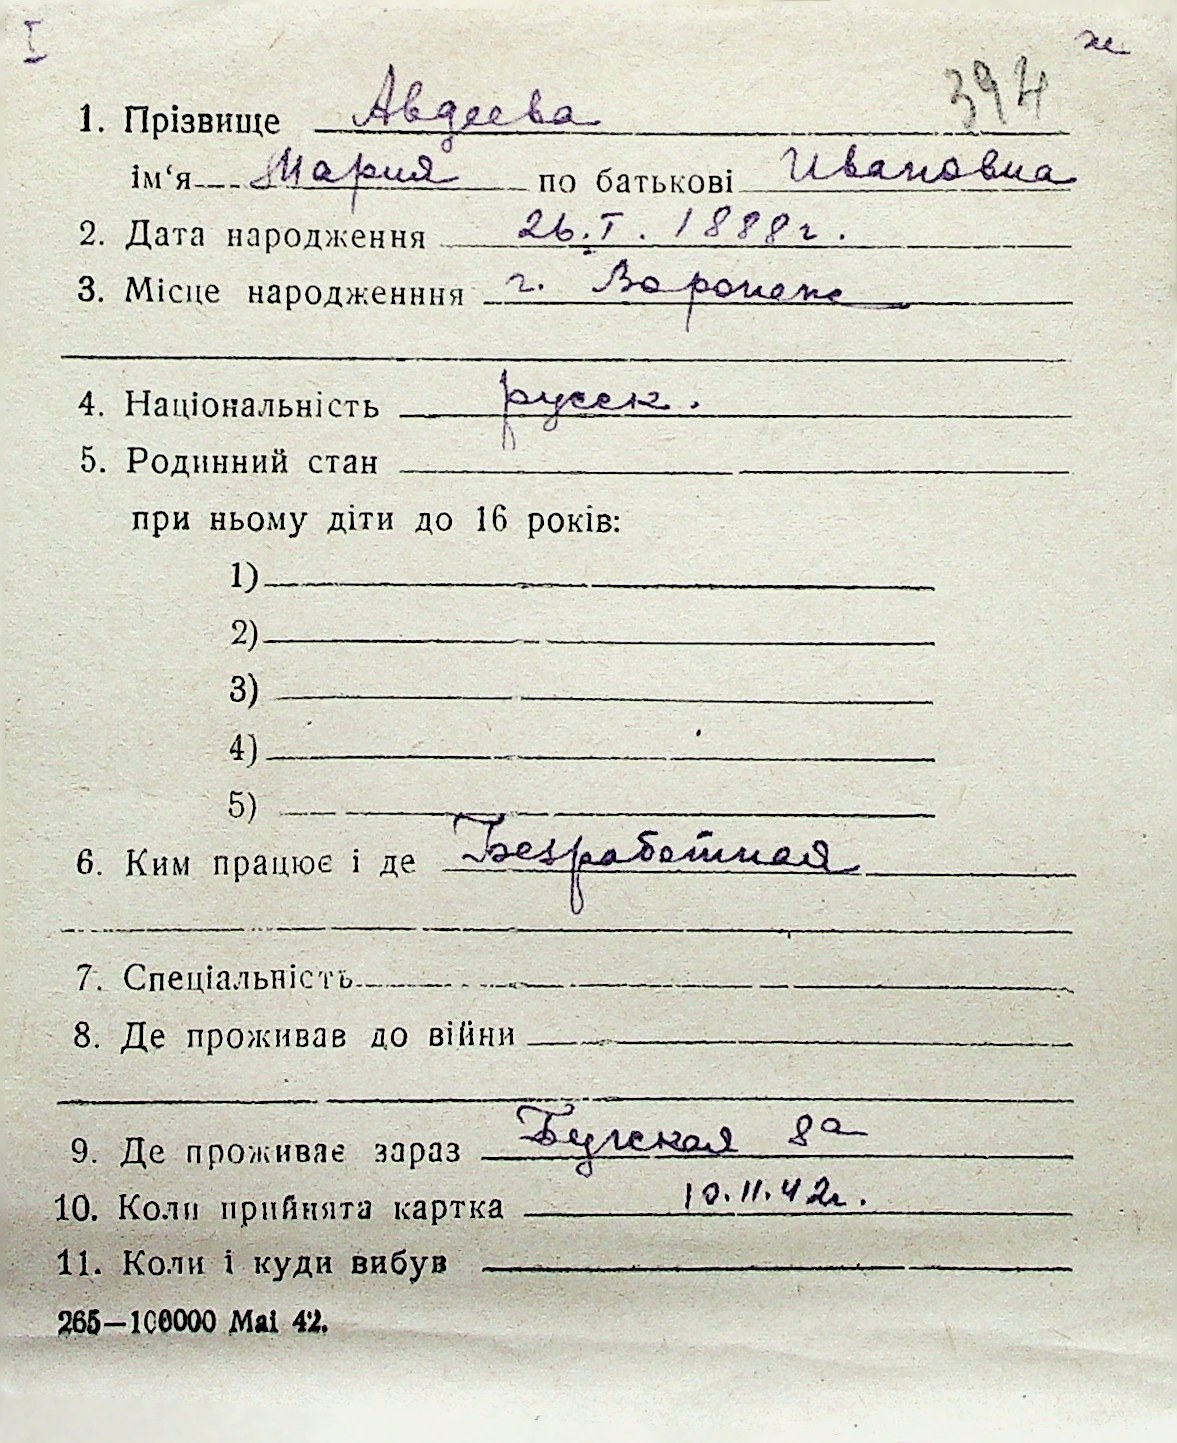 I ж
394
1. Прізвище Авдеева
ім‘я Мария по батькові Ивановна
2. Дата народження 26.I.1888г.
3. Місце народженння г. Воронеж
4. Національність русск.
5. Родинний стан
при ньому діти до 16 років:
1)
2)
3)
4)
5)
6. Ким працює і де Безработная
7. Спеціальність
8. Де проживав до війни
9. Де проживає зараз Бугская 8а
10. Коли прийнята картка 10.11.42г.
11. Коли і куди вибув
265—100000 Mai 42.